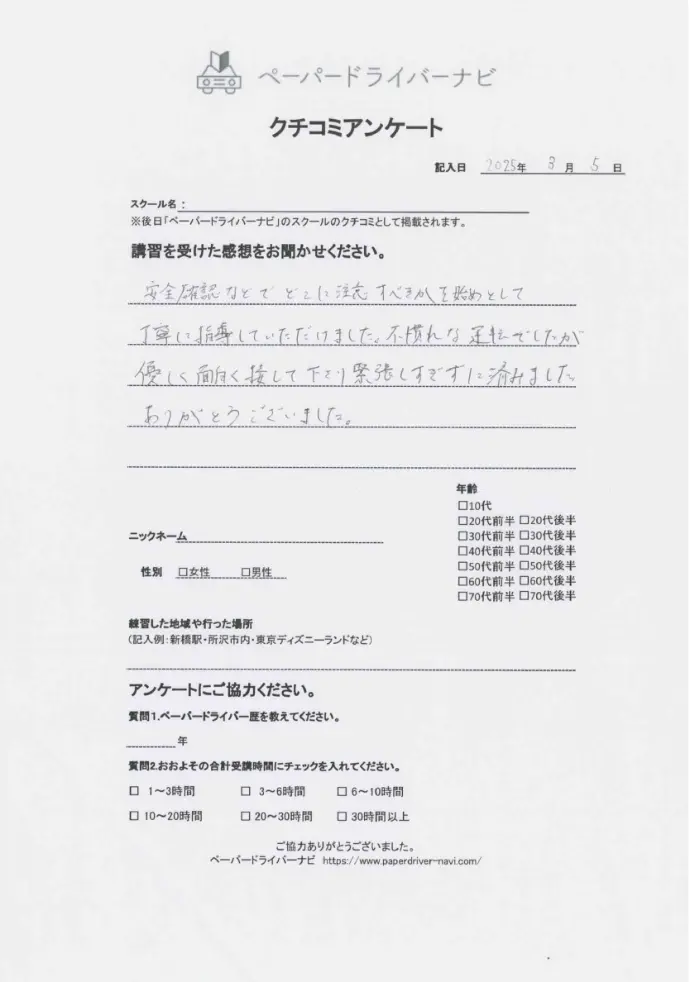 ペーパードライバーナビ
クチコミアンケート
記入日 2025年 3月 5日
スクール名:
※後日「ペーパードライバーナビ」のスクールのクチコミとして掲載されます。
講習を受けた感想をお聞かせください。
安全確認などで どこに注意 すべきかを始めとして
丁寧に指導していただけました。不慣れな運転でしたが
優しく面白く接して下さり緊張しすぎずに済みました。
ありがとうございました。
年齢
□10代
□20代前半 □20代後半
□30代前半 □30代後半
ニックネーム
□40代前半 □40代後半
□50代前半 □50代後半
性別 □女性 □男性
□60代前半 □60代後半
□70代前半 □70代後半
練習した地域や行った場所
(記入例:新橋駅・所沢市内・東京ディズニーランドなど)
アンケートにご協力ください。
質問1.ペーパードライバー歴を教えてください。
年
質問2.おおよその合計受講時間にチェックを入れてください。
□ 1～3時間 □ 3～6時間 □ 6～10時間
□ 10～20時間 □ 20～30時間 □ 30時間以上
ご協力ありがとうございました。
ペーパードライバーナビ https://www.paperdriver-navi.com/